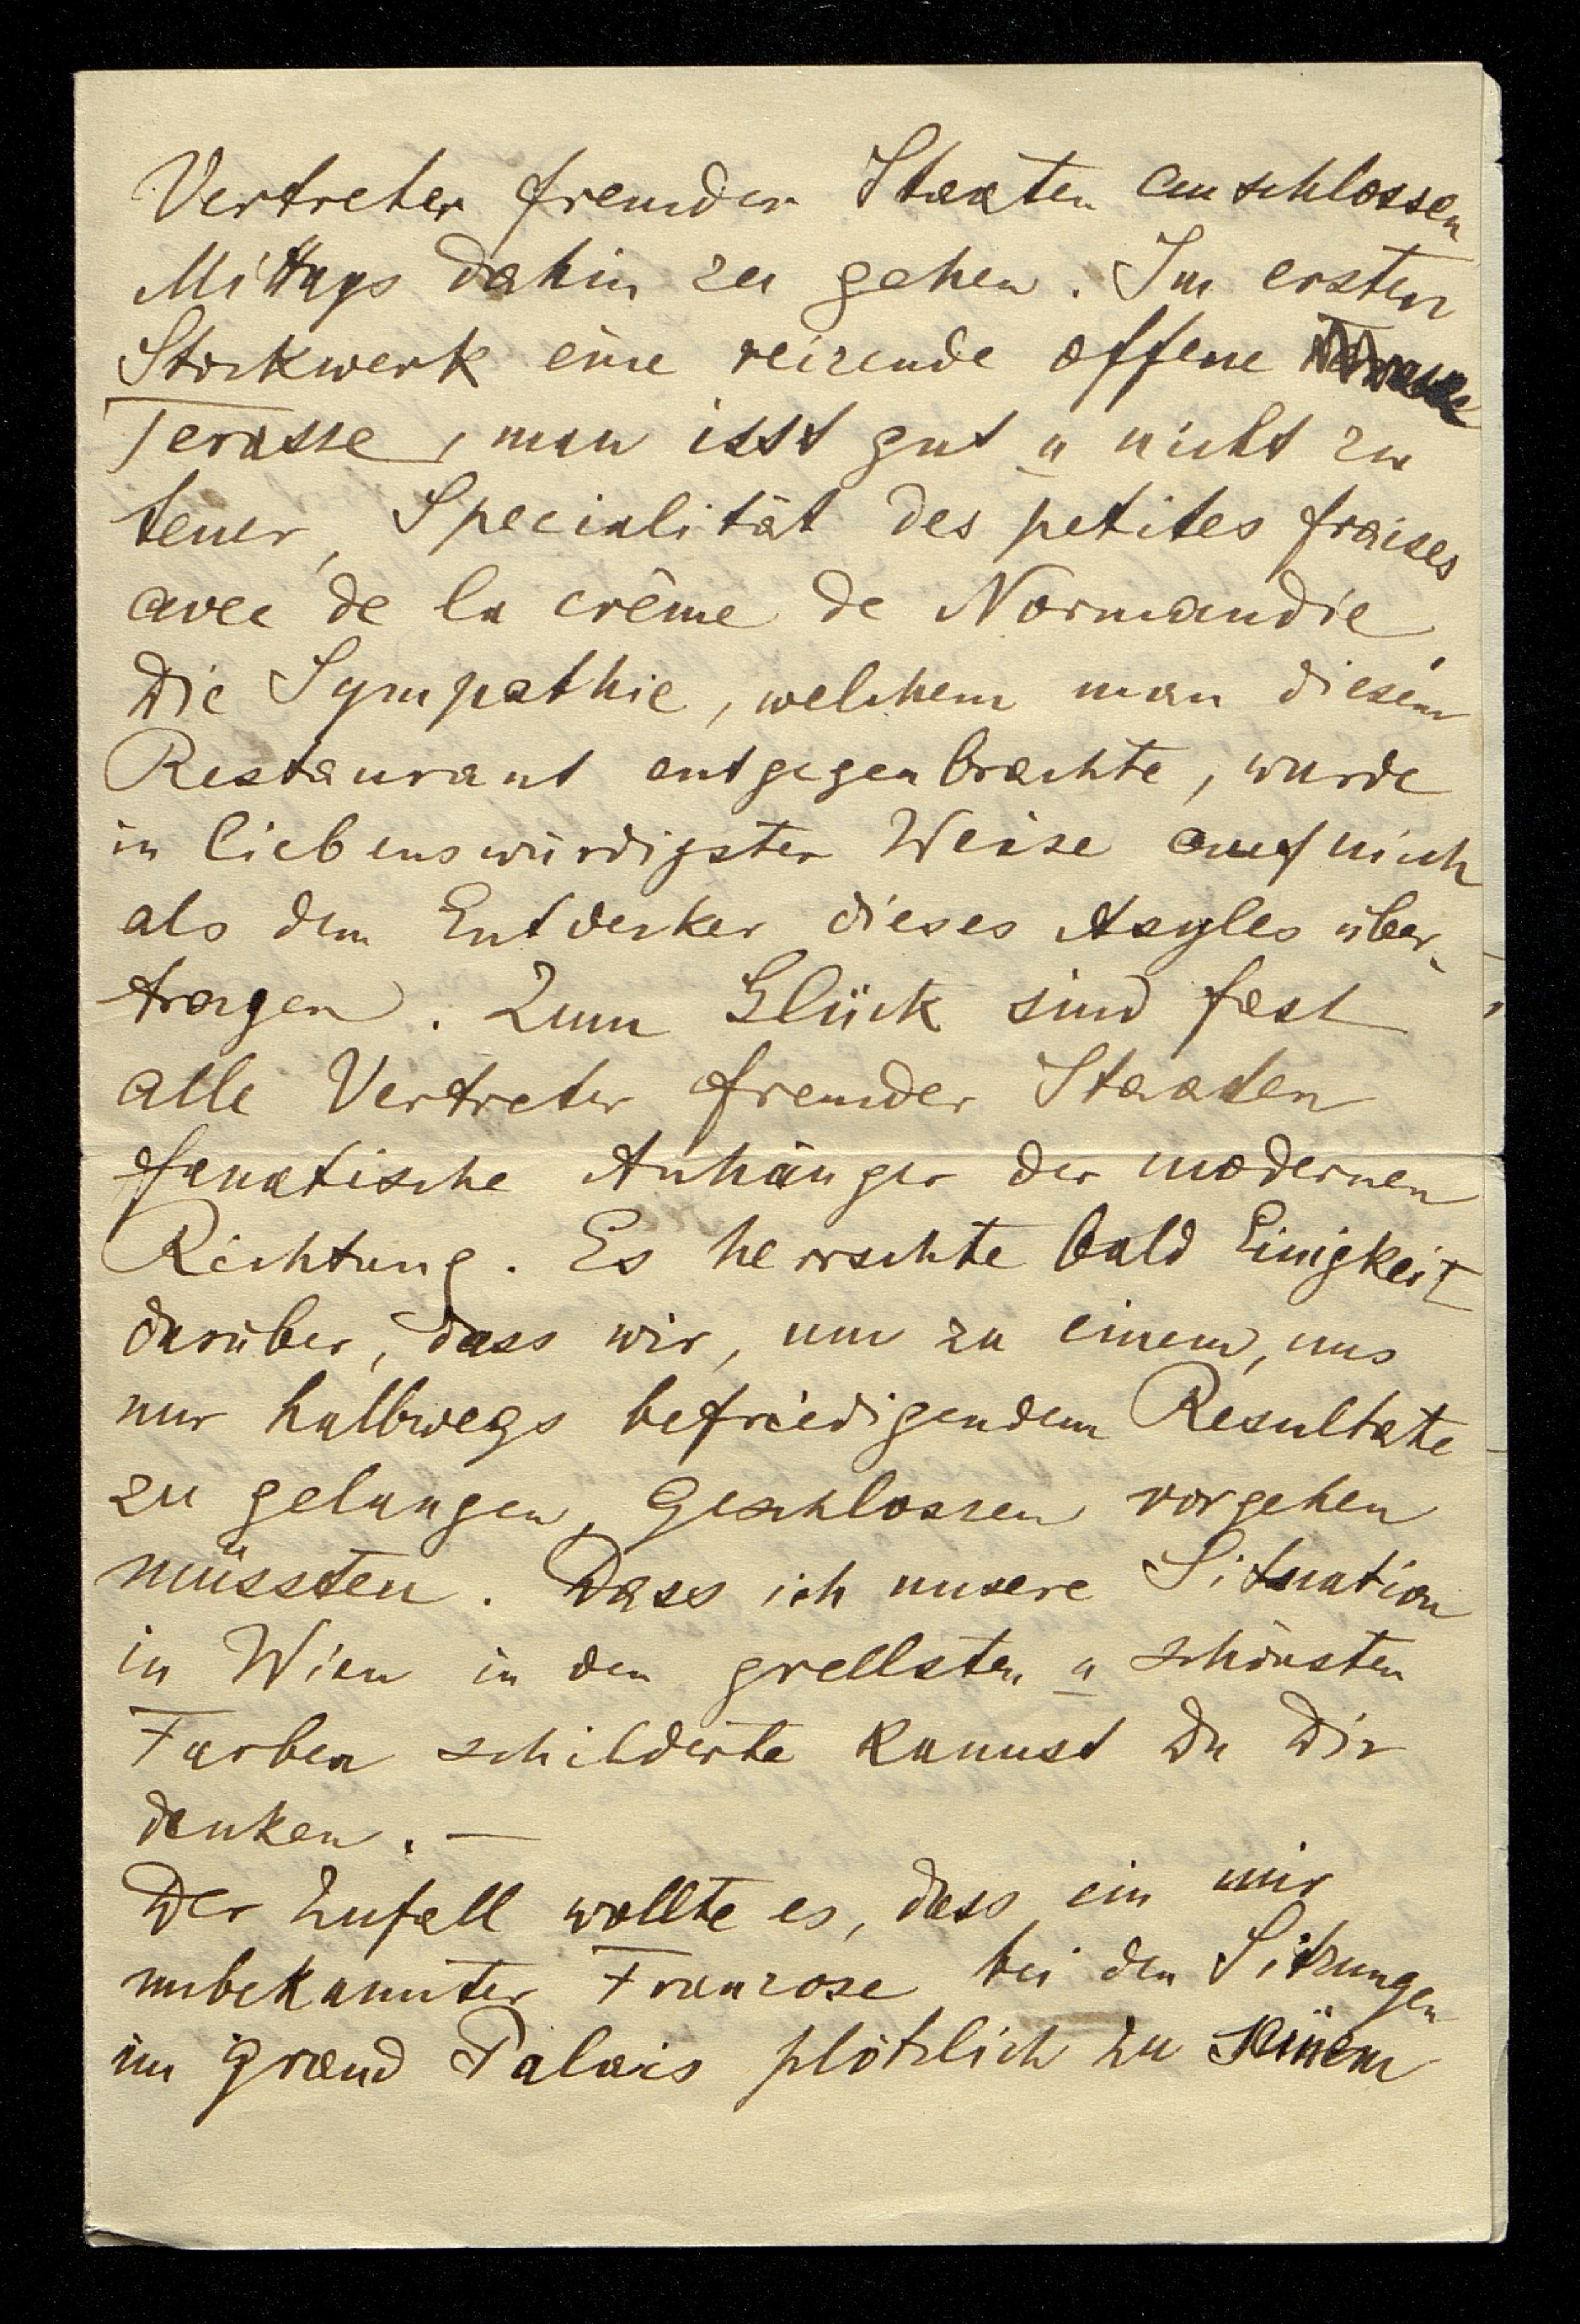 Vertreter fremder Staaten anschlossen
Mittags dahin zu gehen. Im ersten
Stockwerk eine reizende offene
Terasse, man isst gut u nicht zu
teuer, Specialität des petites fraises
avec de la crême de Normandie.
Die Sympathie, welchem man diesem
Restaurant entgegenbrachte, wurde
in liebenswürdigster Weise auf mich
als dem Entdecker dieses Asyles über-
tragen. Zum Glück sind fast
alle Vertreter fremder Staaten
fanatische Anhänger der modernen
Richtung. Es herrschte bald Einigkeit
darüber, dass wir, um zu einem, uns
nur halbwegs befriedigendem Resultate
zu gelangen, geschlossen vorgehen
müssten. Dass ich unsere Situation
in Wien in den grellsten u schönsten
Farben schilderte kannst Du Dir
denken. —
Der Zufall wollte es, dass ein mir
unbekannter Franzose bei den Sitzungen
im grand Palais plötzlich zu seinem